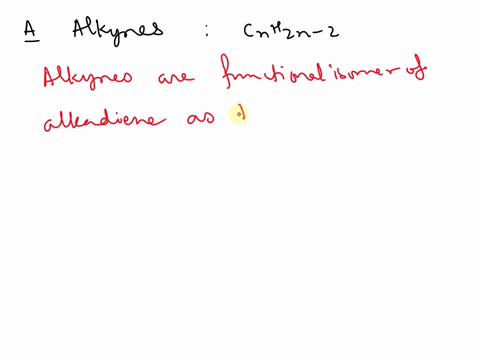 A Alkynes : CnH2n-2
Alkynes are functional isomer of
alkadiene as